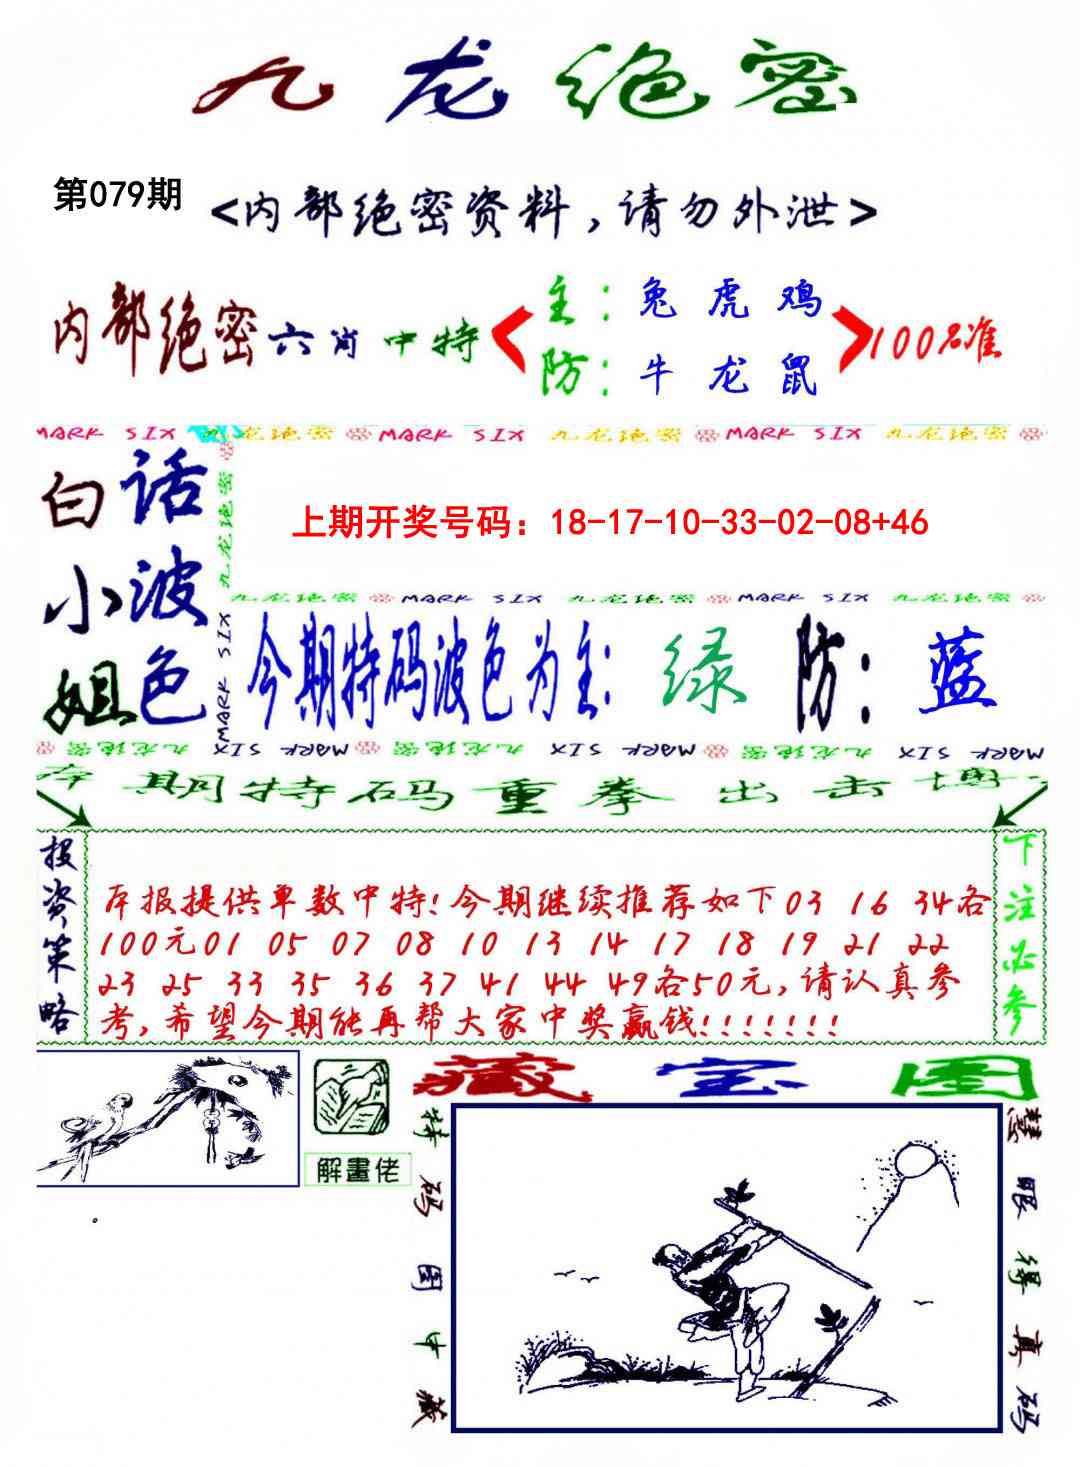 九龙绝密
第079期
<内部绝密资料,请勿外泄>
内部绝密六肖中特
主:兔虎鸡
防:牛龙鼠
100%准
MARK SIX 九龙绝密 MARK SIX 九龙绝密 MARK SIX 九龙绝密
白话
小波
姐色
九龙绝密
MARK SIX
上期开奖号码：18-17-10-33-02-08+46
九龙绝密 MARK SIX 九龙绝密 MARK SIX 九龙绝密
今期特码波色为主:绿 防:蓝
九龙绝密 MARK SIX 九龙绝密 MARK SIX 九龙绝密 MARK SIX
本期特码重拳出击博
投资策略
本报提供单数中特!今期继续推荐如下03 16 34各
100元01 05 07 08 10 13 14 17 18 19 21 22
23 25 33 35 36 37 41 44 49各50元,请认真参
考,希望今期能再帮大家中奖赢钱!!!!!!!
下注必参
解畫佬
藏宝图
特码图中藏
慧眼得真码